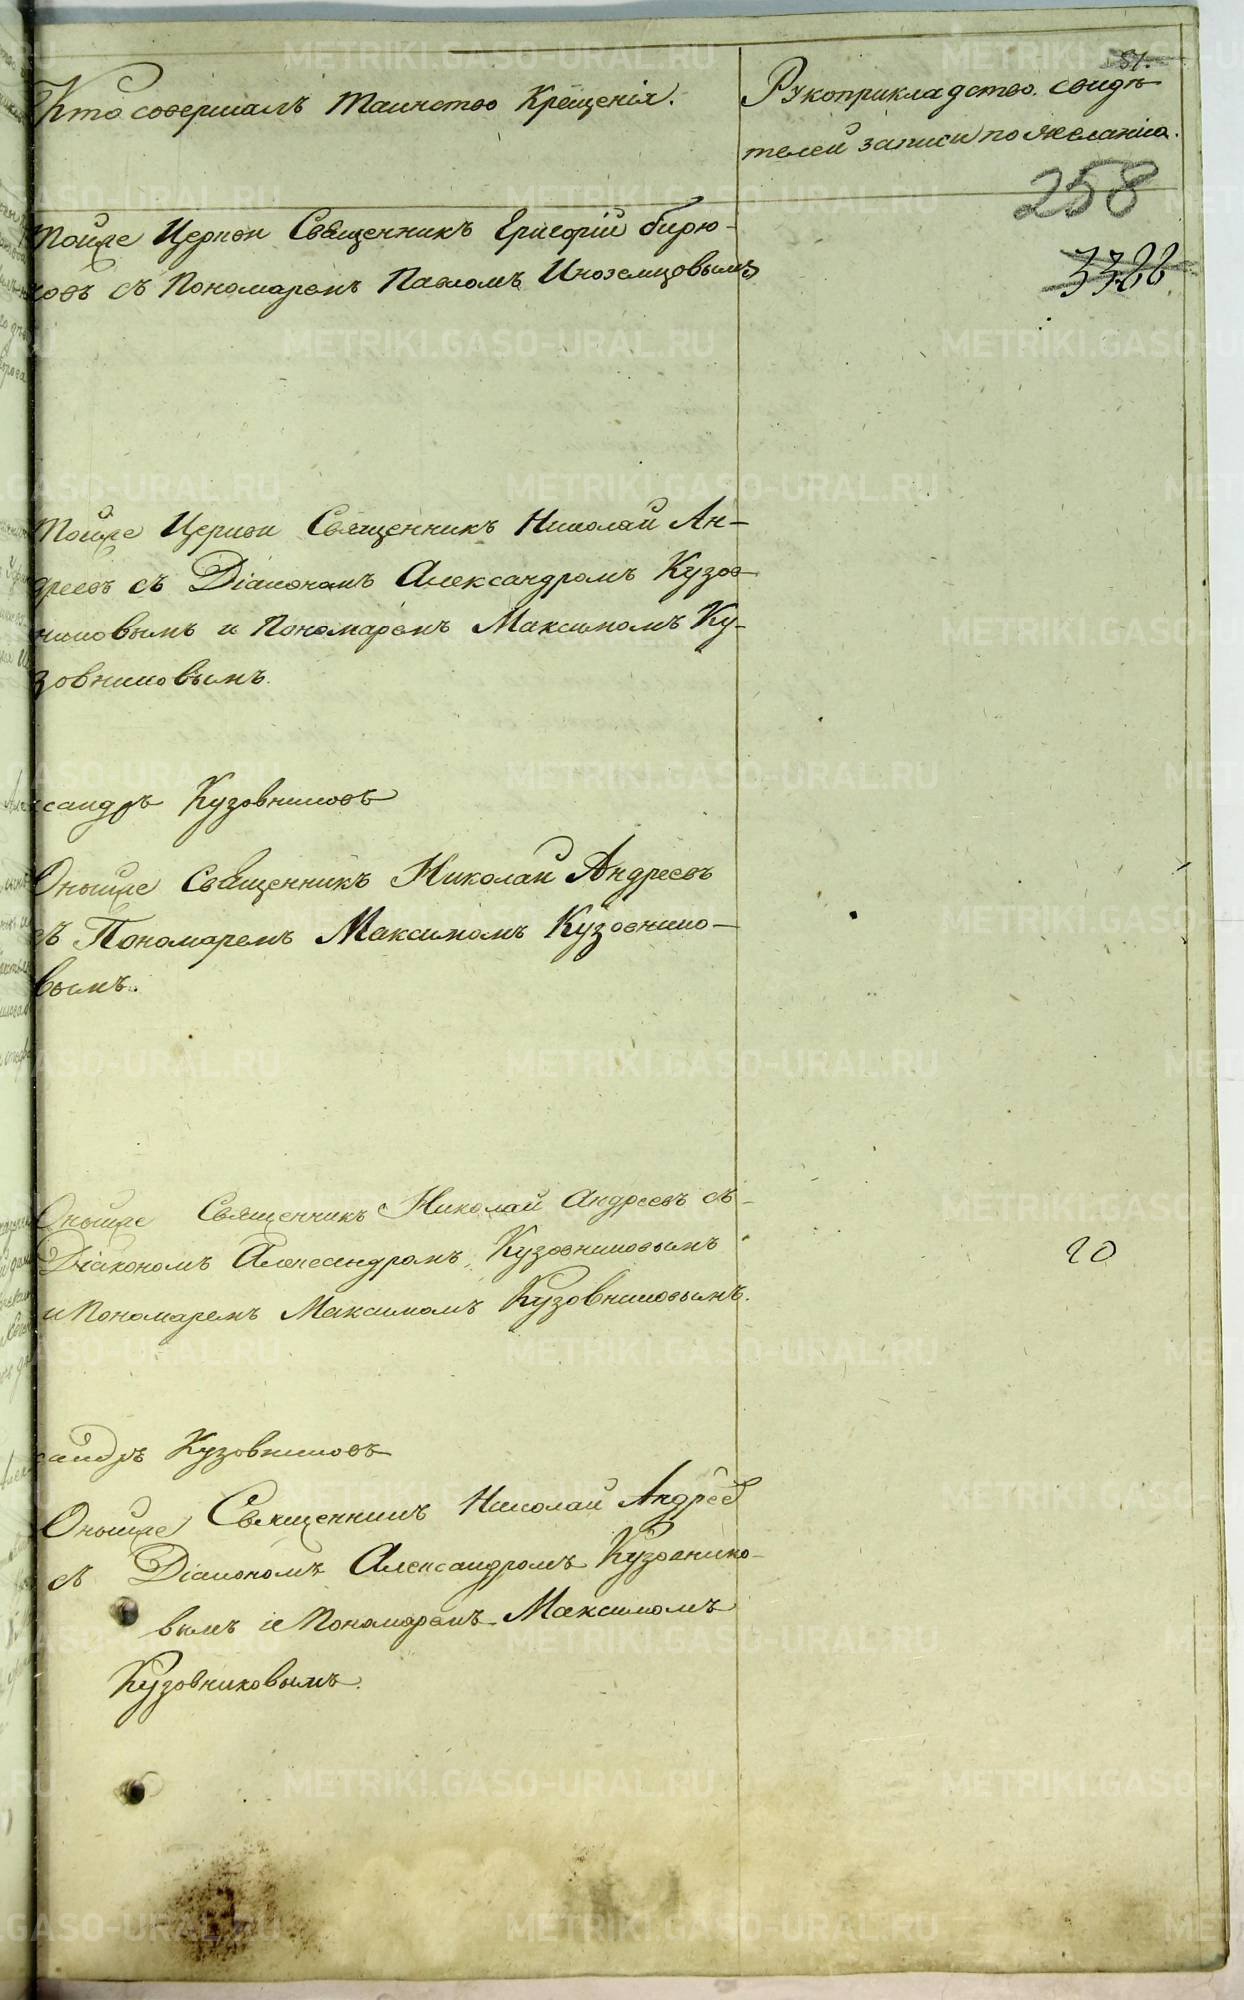 81.
Кто совершалъ таинство Крещенія.
Рукоприкладство свидѣ
телей записи по желанію.
258
3388
Тойже Церкви Священникъ Григорій Бирю-
ковъ съ Пономаремъ Павломъ Иноземцовымъ
Тойже Церкви Священникъ Николай Ан-
дреевъ съ Діакономъ Александромъ Кузов-
никовымъ и Пономаремъ Максимомъ Ку-
зовниковымъ.
Александръ Кузовниковъ
Онъ же Священникъ Николай Андреевъ
съ Пономаремъ Максимомъ Кузовнико-
вымъ.
Онъ же Священникъ Николай Андреевъ съ
Діакономъ Александромъ Кузовниковымъ
20
и Пономаремъ Максимомъ Кузовниковымъ.
сандръ Кузовниковъ
Онъ же Священникъ Николай Андреев
съ Діакономъ Александромъ Кузовнико-
вымъ и Пономаремъ Максимомъ
Кузовниковымъ.
METRIKI.GASO-URAL.RU